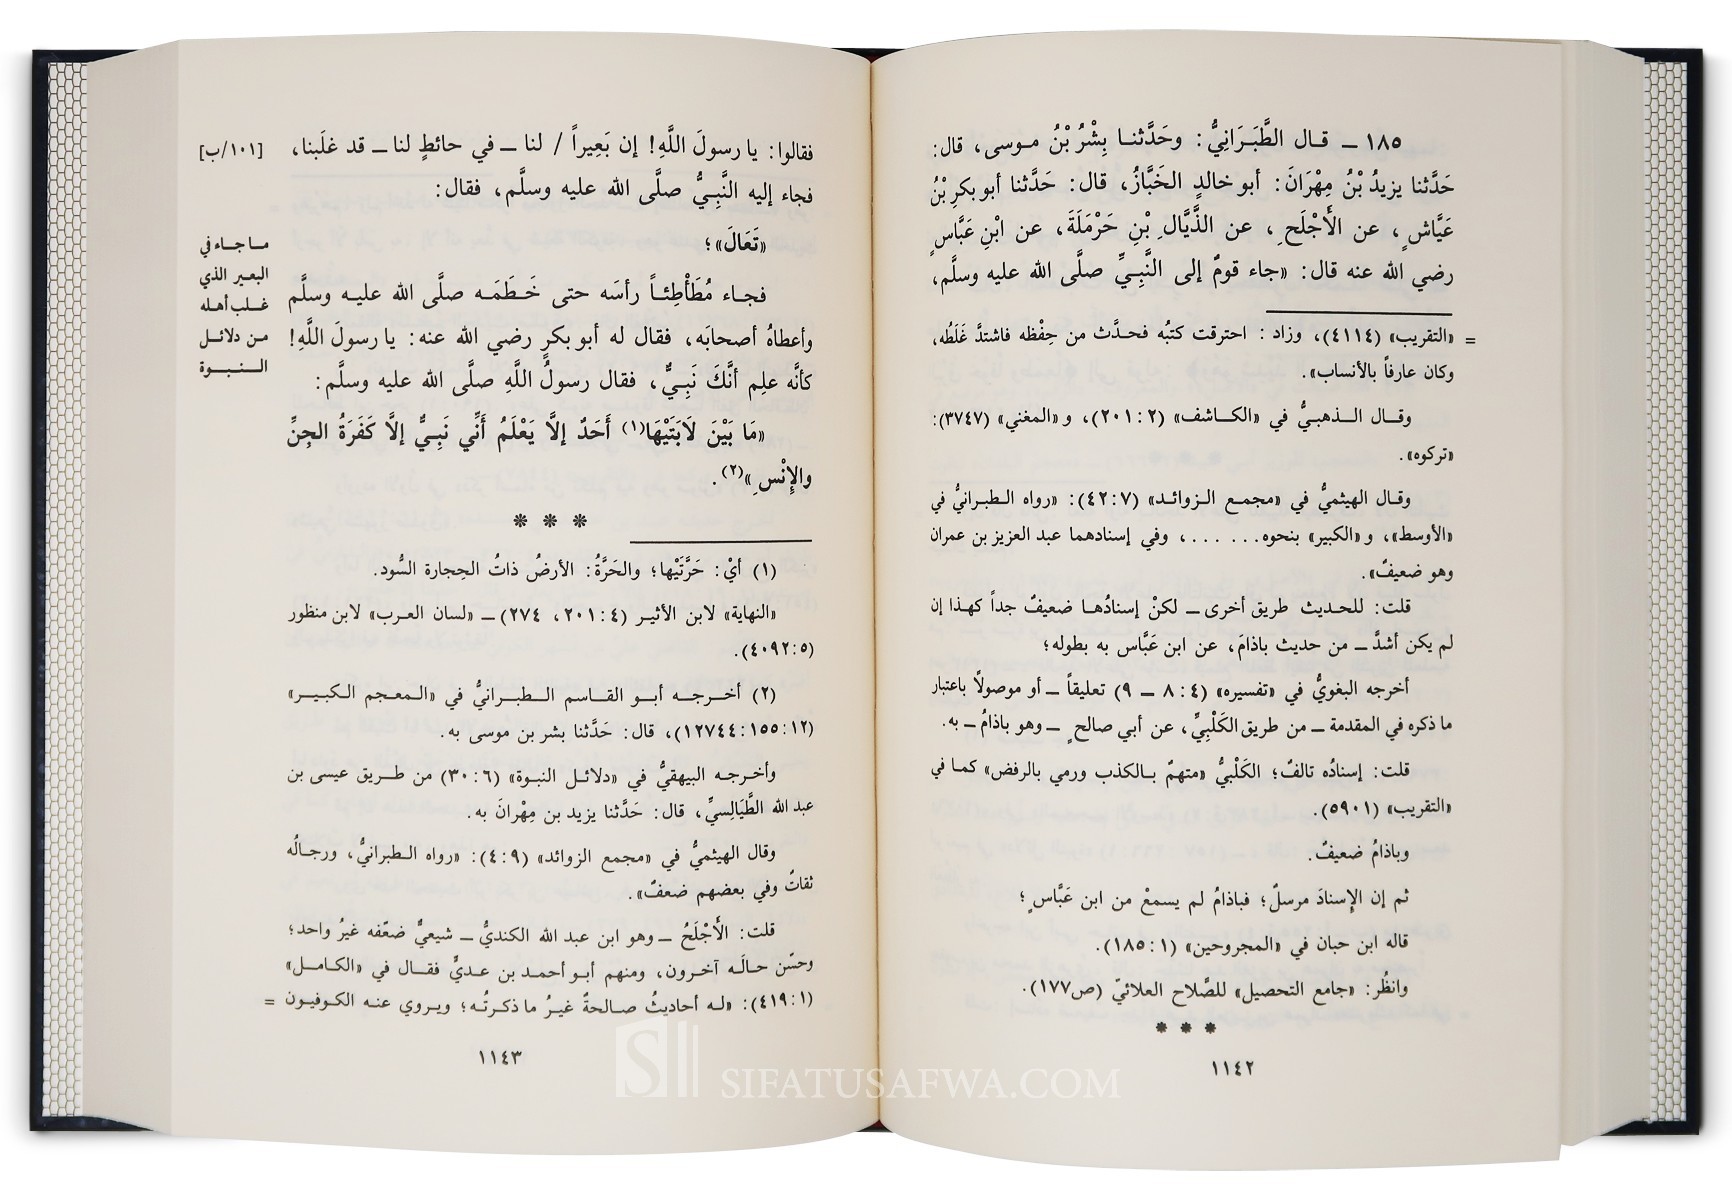 ١٨٥ ــ قال الطَّبَرَانِيُّ: وحَدَّثنا بِشْرُ بْنُ موسى، قال:
حَدَّثنا يزيدُ بْنُ مِهْرَانَ: أبو خالدٍ الخَبَّازُ، قال: حَدَّثنا أبو بكرِ بْنُ
عَيَّاشٍ، عن الأَجْلَحِ، عن الذَّيَّالِ بْنِ حَرْمَلَةَ، عن ابْنِ عَبَّاسٍ
رضي الله عنه قال: «جاء قومٌ إلى النَّبِيِّ صلَّى الله عليه وسلَّم،
= «التقريب» (٤١١٤)، وزاد: احترقت كتبُه فحدَّث من حِفْظه فاشتدَّ غَلَطُه،
وكان عارفاً بالأنساب».
وقال الذهبيُّ في «الكاشف» (٢٠١:٢)، و«المغني» (٣٧٤٧):
«تركوه».
وقال الهيثميُّ في «مجمع الزوائد» (٤٢:٧): «رواه الطبرانيُّ في
«الأوسط»، و«الكبير» بنحوه......، وفي إسنادهما عبد العزيز بن عمران
وهو ضعيفٌ».
قلت: للحديث طريق أخرى ــ لكنْ إسنادُها ضعيفٌ جداً كهذا إن
لم يكن أشدَّ ــ من حديث باذامَ، عن ابن عَبَّاس به بطوله؛
أخرجه البغويُّ في «تفسيره» (٨:٤ ــ ٩) تعليقاً ــ أو موصولًا باعتبار
ما ذكره في المقدمة ــ من طريق الكَلْبِيِّ، عن أبي صالحٍ ــ وهو باذامُ ــ به.
قلت: إسنادُه تالفٌ؛ الكَلْبيُّ «متهمٌ بالكذب ورمي بالرفض» كما في
«التقريب» (٥٩٠١).
وباذامُ ضعيفٌ.
ثم إن الإِسنادَ مرسلٌ؛ فباذامُ لم يسمعْ من ابن عَبَّاسٍ؛
قاله ابن حبان في «المجروحين» (١٨٥:١).
وانظُر: «جامع التحصيل» للصَّلاح العلائيّ (ص١٧٧).
* * *
١١٤٢
فقالوا: يا رسولَ اللَّهِ! إن بَعِيراً / لنا ــ في حائطٍ لنا ــ قد غلَبنا، [١٠١/ب]
فجاء إليه النَّبِيُّ صلَّى الله عليه وسلَّم، فقال:
«تَعَالَ»؛
ما جاء في
البعير الذي
غلب أهله
من دلائل
النبوة
فجاء مُطَأْطِئاً رأسَه حتى خَطَمَه صلَّى الله عليه وسلَّم
وأعطاهُ أصحابَه، فقال له أبو بكرٍ رضي الله عنه: يا رسولَ اللَّهِ!
كأنَّه علِم أنَّكَ نَبِيٌّ، فقال رسولُ اللَّهِ صلَّى الله عليه وسلَّم:
«مَا بَيْنَ لَابَتَيْهَا(١) أَحَدٌ إلَّا يَعْلَمُ أَنِّي نَبِيٌّ إلَّا كَفَرَةُ الجِنِّ
والإِنْسِ»(٢).
* * *
(١) أيْ: حَرَّتَيْها؛ والحَرَّةُ: الأرضُ ذاتُ الحِجارة السُّود.
«النهاية» لابن الأثير (٢٠١:٤، ٢٧٤) ــ «لسان العرب» لابن منظور
(٤٠٩٢:٥).
(٢) أخرجه أبو القاسم الطبرانيُّ في «المعجم الكبير»
(١٢٧٤٤:١٥٥:١٢)، قال: حَدَّثنا بشر بن موسى به.
وأخرجه البيهقيُّ في «دلائل النبوة» (٣٠:٦) من طريق عيسى بن
عبد الله الطَّيَالِسيِّ، قال: حَدَّثنا يزيد بن مِهْرانَ به.
وقال الهيثميُّ في «مجمع الزوائد» (٤:٩): «رواه الطبرانيُّ، ورجالُه
ثقاتٌ وفي بعضهم ضعفٌ».
قلت: الأَجْلَحُ ــ وهو ابن عبد الله الكنديُّ ــ شيعيٌّ ضعّفه غيرُ واحد؛
وحسّن حالَه آخرون، ومنهم أبو أحمد بن عديٍّ فقال في «الكامل»
(٤١٩:١): «له أحاديثُ صالحةٌ غيرُ ما ذكرتُه؛ ويروي عنه الكوفيون =
١١٤٣
SIFATUSAFWA.COM